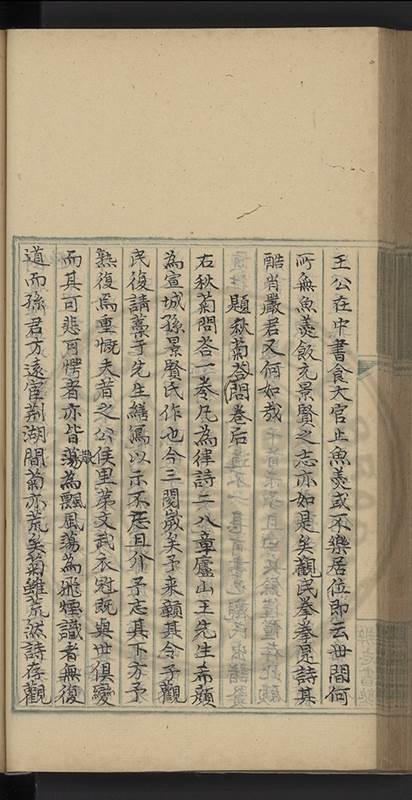 王公在中書食大官止魚羹或不樂居位即云世間何
所無魚羹飯充景賢之志亦如是矣觀民拳拳是詩其
酷肖嚴君又何如哉
題秋菊答問卷后
右秋菊問答一卷凡為律詩二八章廬山王先生希顔
為宣城孫景賢氏作也今三閱歲矣予来顧其令子觀
民復請藁于先生繕寫以示不忍且介予志其下方予
熟復焉重慨夫昔之公侯里第文武衣冠既與世俱變
而其可悲可愕者亦皆蕩為飄風散為飛煙識者無復
道而孫君方遠宦荆湖間菊亦荒矣菊雖荒然詩存觀